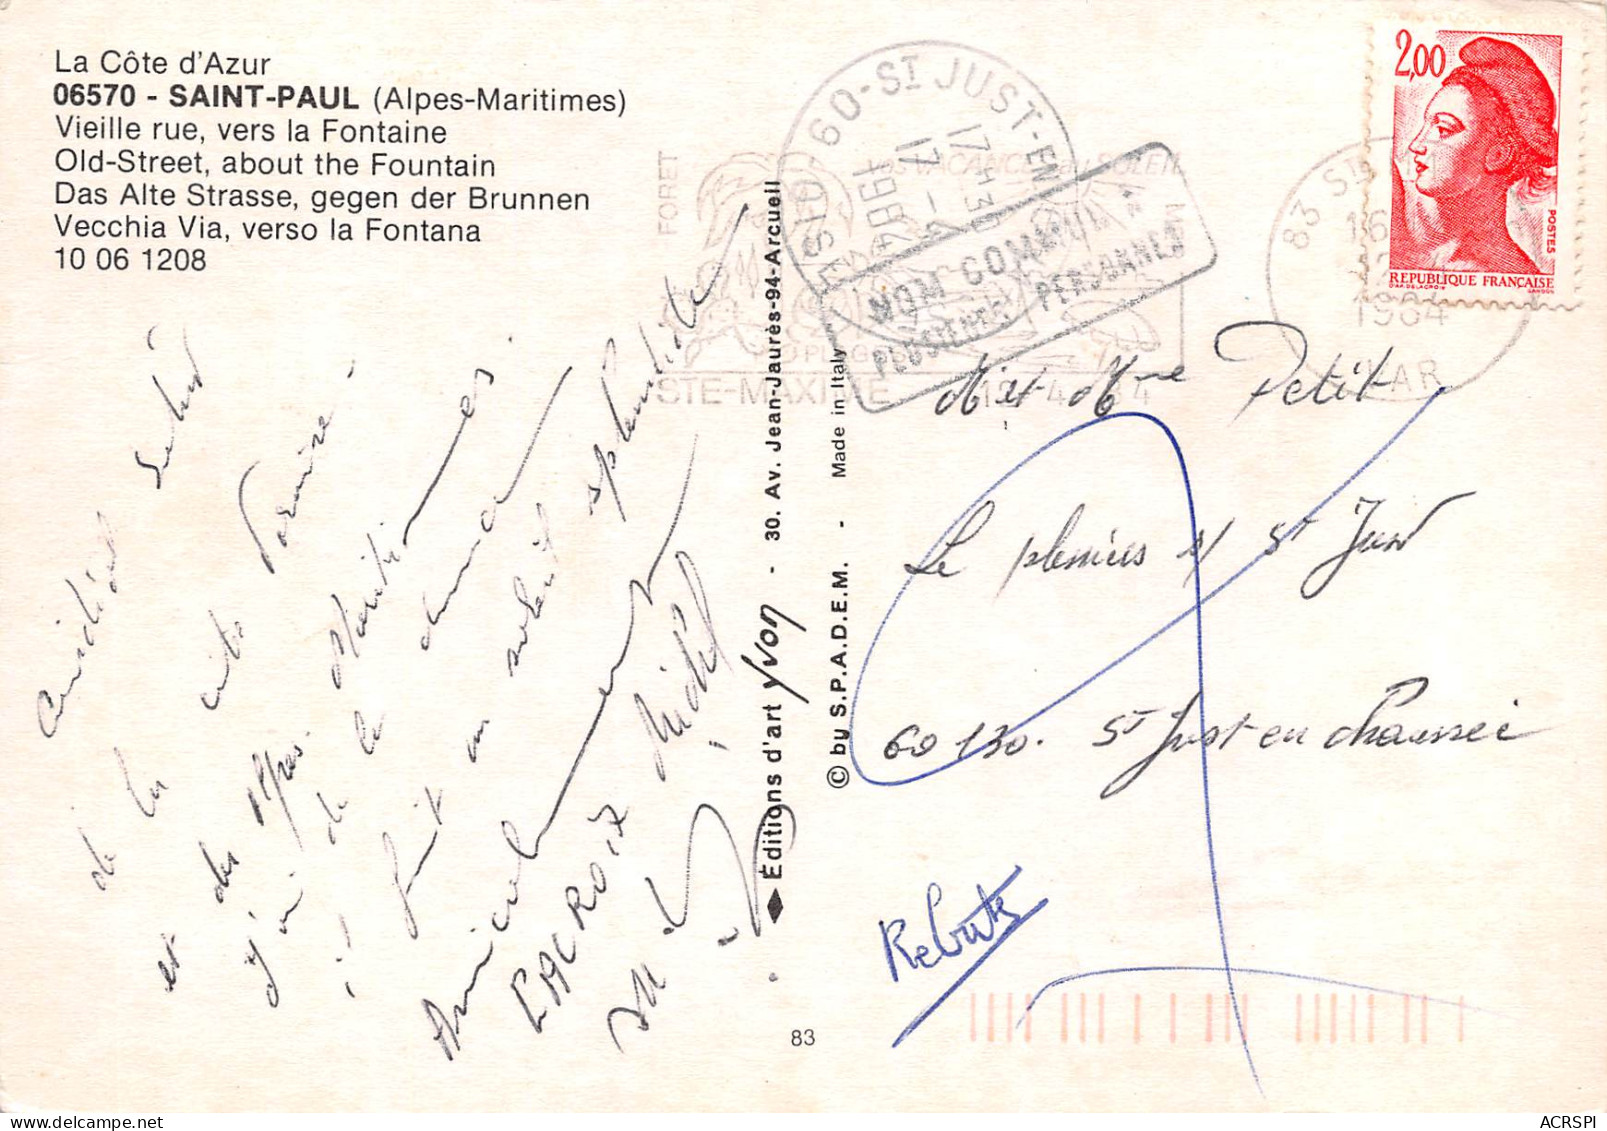 La Côte d'Azur
06570 - SAINT-PAUL (Alpes-Maritimes)
Vieille rue, vers la Fontaine
Old-Street, about the Fountain
Das Alte Strasse, gegen der Brunnen
Vecchia Via, verso la Fontana
10 06 1208
60-ST JUST-EN
OISE
17H30
17-4
1984
NOM COMMUN A
PLUSIEURS PERSONNES
FORET
VACANCES au SOLEIL
STE-MAXIME
12-4
83 ST
16
1984
VAR
2,00
POSTES
REPUBLIQUE FRANÇAISE
D'AP. DELACROIX
GANDON
Cordial
de la
et des Alpes. Maritimes
j'ai de la chance
il fait un soleil splendide
Amicalement
LACROIX Michel
Éditions d'art Yvon - 30. Av. Jean-Jaurès-94-Arcueil
© by S.P.A.D.E.M. - Made in Italy
83
Mr et Mme Petit
Le plessier s/ St Just
60130. St Just en chaussée
Rebuts
ACRSPI